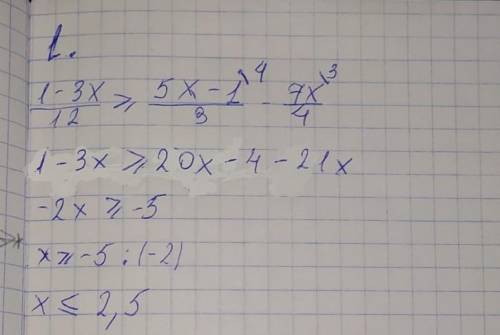 1.
(1-3x)/12 ⩾ (5x-1)/3 ⁴ - 7x/4 ³
1-3x ⩾ 20x-4-21x
-2x ⩾ -5
x ⩾ -5:(-2)
x ⩽ 2,5